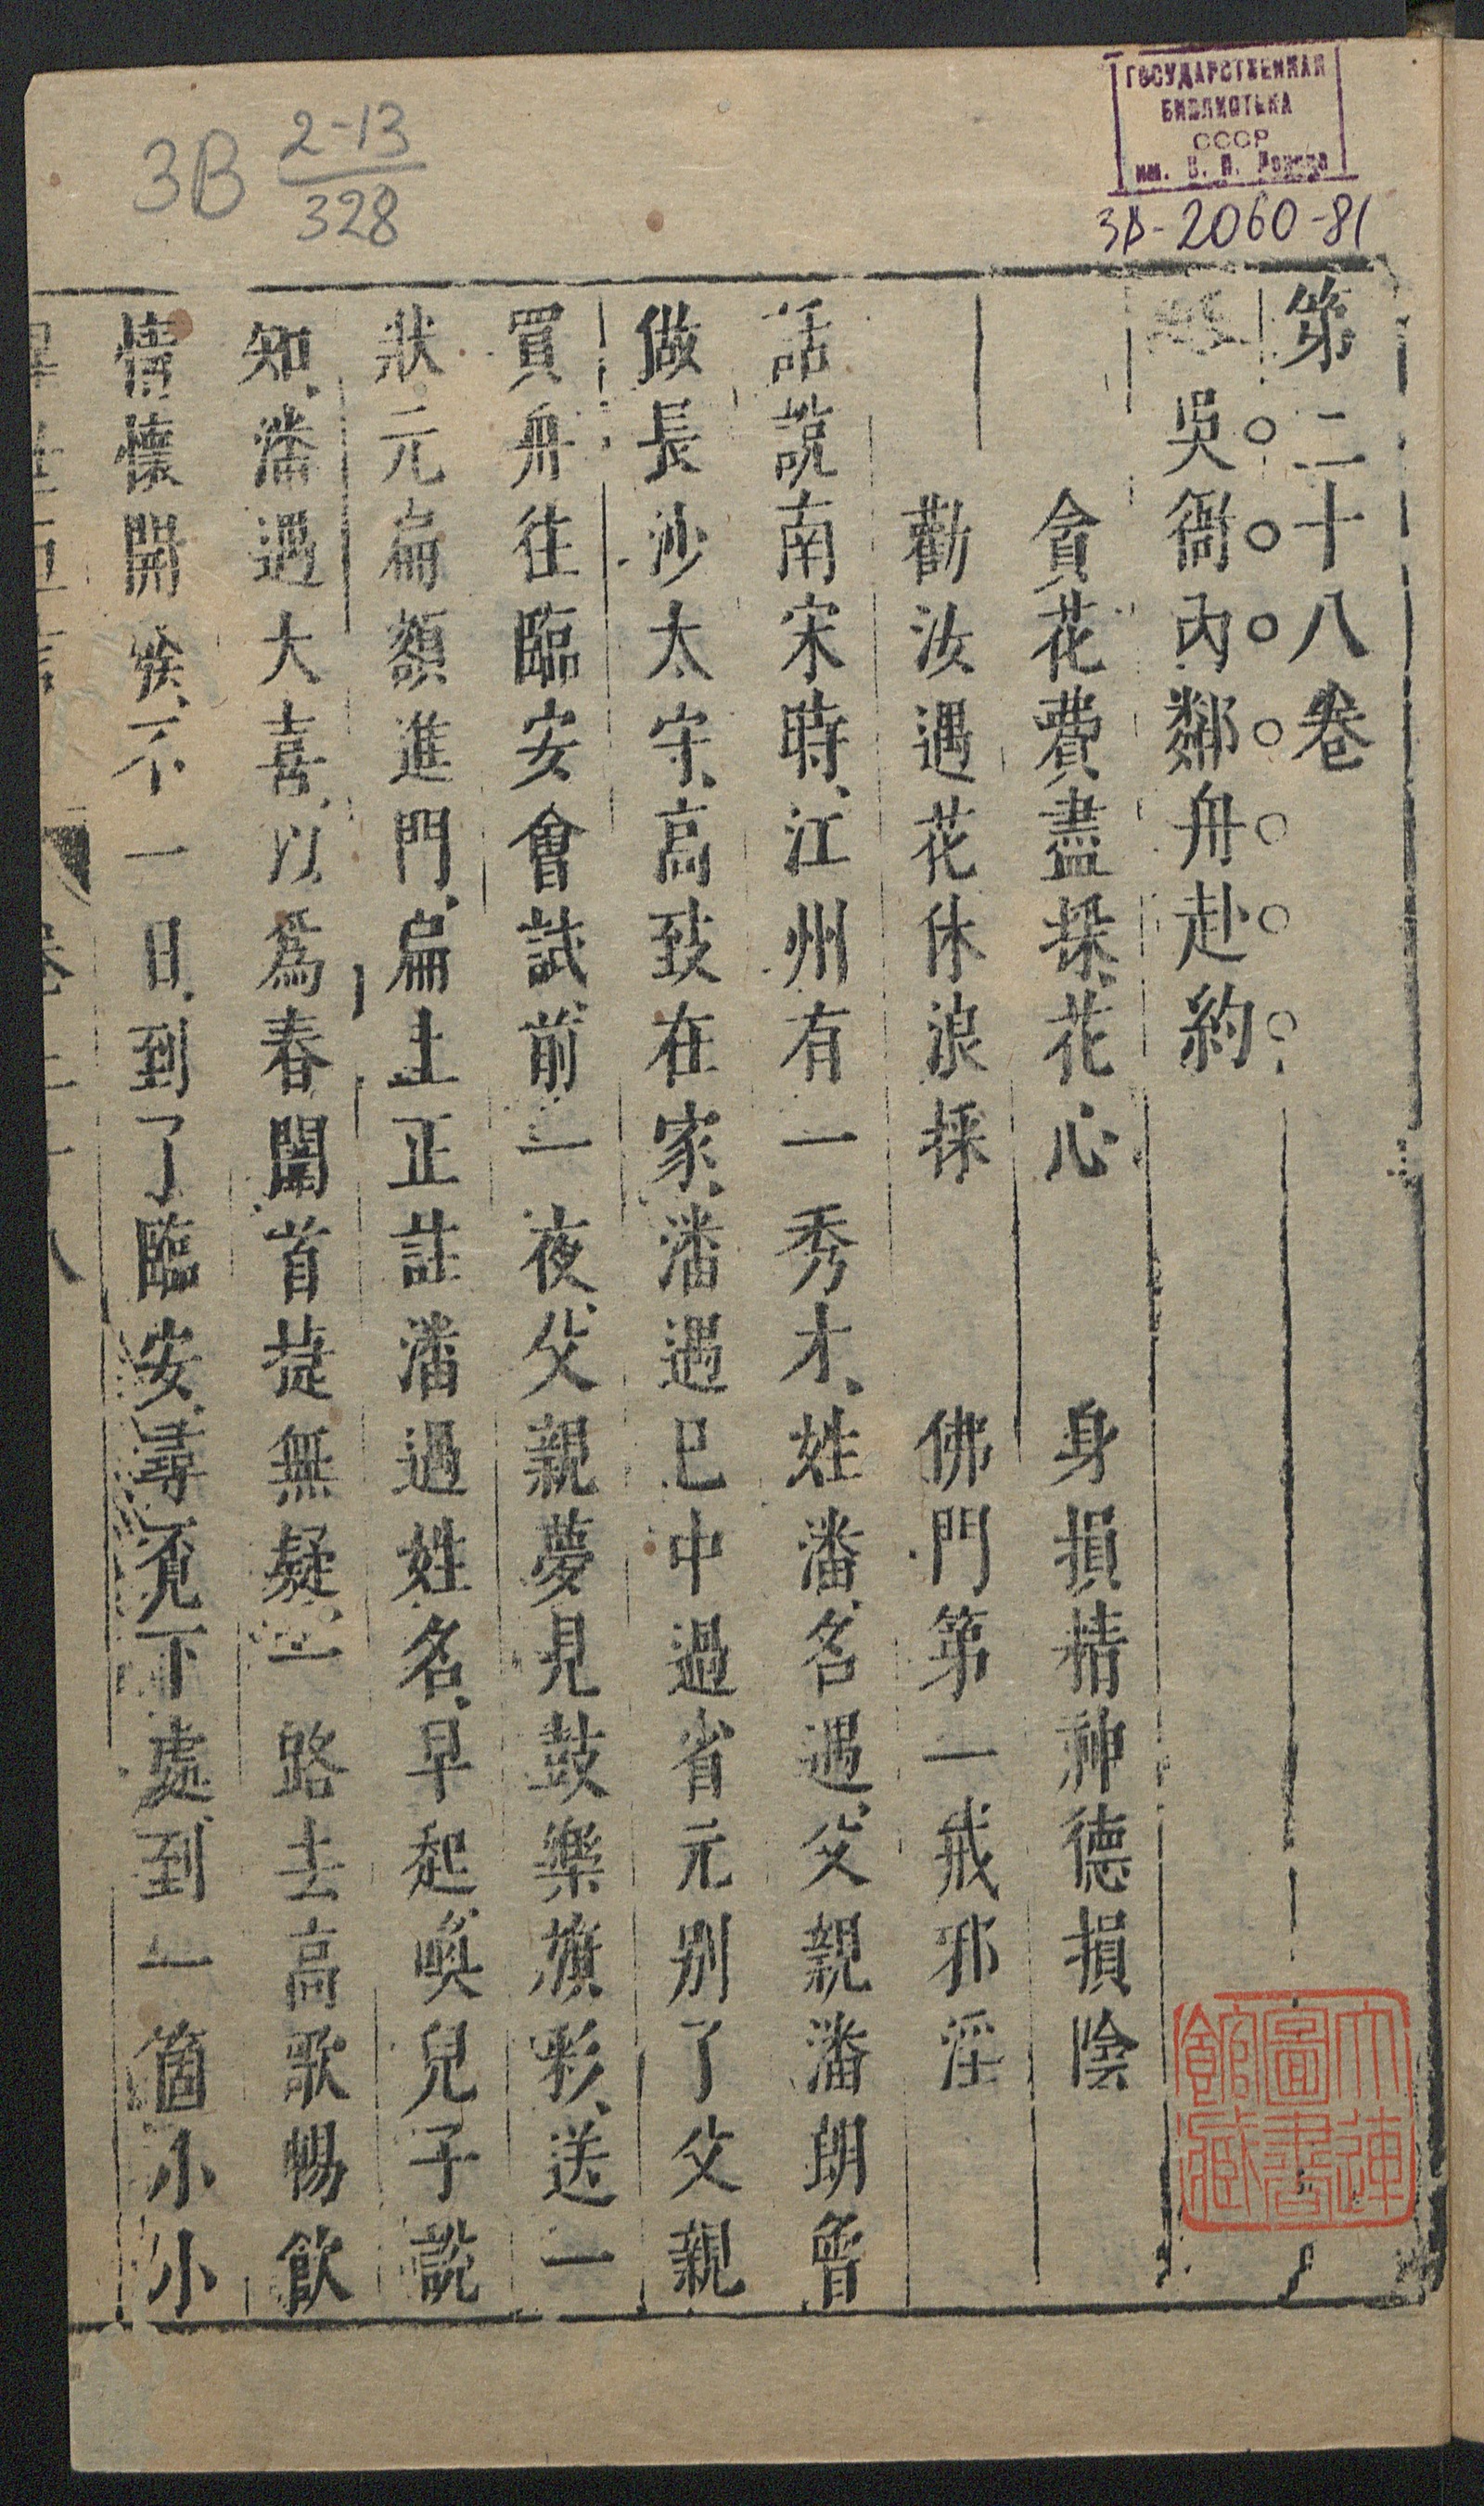 ГОСУДАРСТВЕННАЯ
БИБЛИОТЕКА
СССР
им. В. И. Ленина
3В-2060-81
3В 2-13
328
第二十八卷
吳衙內鄰舟赴約
貪花費盡採花心　身損精神德損陰
勸汝遇花休浪採　佛門第一戒邪淫
話說南宋時、江州有一秀才、姓潘、名遇、父親潘朗、曾
做長沙太守、高致在家、潘遇已中過省元、別了父親、
買舟往臨安會試、前一夜、父親夢見鼓樂旗彩、送一
狀元扁額進門、扁上正註潘遇姓名、早起、喚兒子說
知、潘遇大喜、以爲春闈首捷無疑、一路去高歌暢飲
情懷開發、不一日、到了臨安、尋覓下處、到一箇小小
卷二十八
大連
圖書
館藏